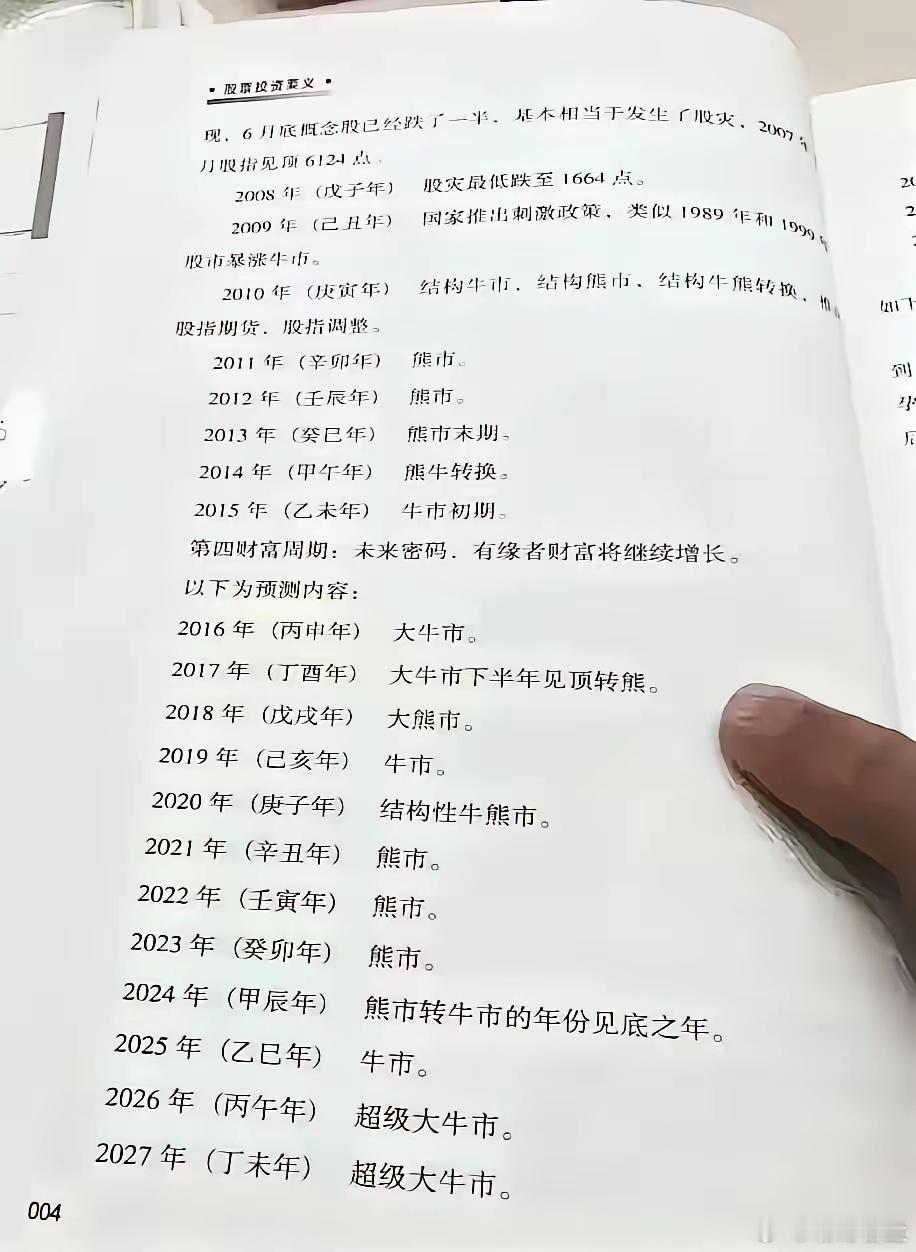 • 股票投资要义 •
现，6月底概念股已经跌了一半，基本相当于发生了股灾，2007年
月股指见顶6124点。
2008年（戊子年） 股灾最低跌至1664点。
2009年（己丑年） 国家推出刺激政策，类似1989年和1999年
股市暴涨牛市。
2010年（庚寅年） 结构牛市，结构熊市，结构牛熊转换，推
股指期货，股指调整。
2011年（辛卯年） 熊市。
2012年（壬辰年） 熊市。
2013年（癸巳年） 熊市末期。
2014年（甲午年） 熊牛转换。
2015年（乙未年） 牛市初期。
第四财富周期：未来密码，有缘者财富将继续增长。
以下为预测内容：
2016年（丙申年） 大牛市。
2017年（丁酉年） 大牛市下半年见顶转熊。
2018年（戊戌年） 大熊市。
2019年（己亥年） 牛市。
2020年（庚子年） 结构性牛熊市。
2021年（辛丑年） 熊市。
2022年（壬寅年） 熊市。
2023年（癸卯年） 熊市。
2024年（甲辰年） 熊市转牛市的年份见底之年。
2025年（乙巳年） 牛市。
2026年（丙午年） 超级大牛市。
2027年（丁未年） 超级大牛市。
004
20
2
如下
到